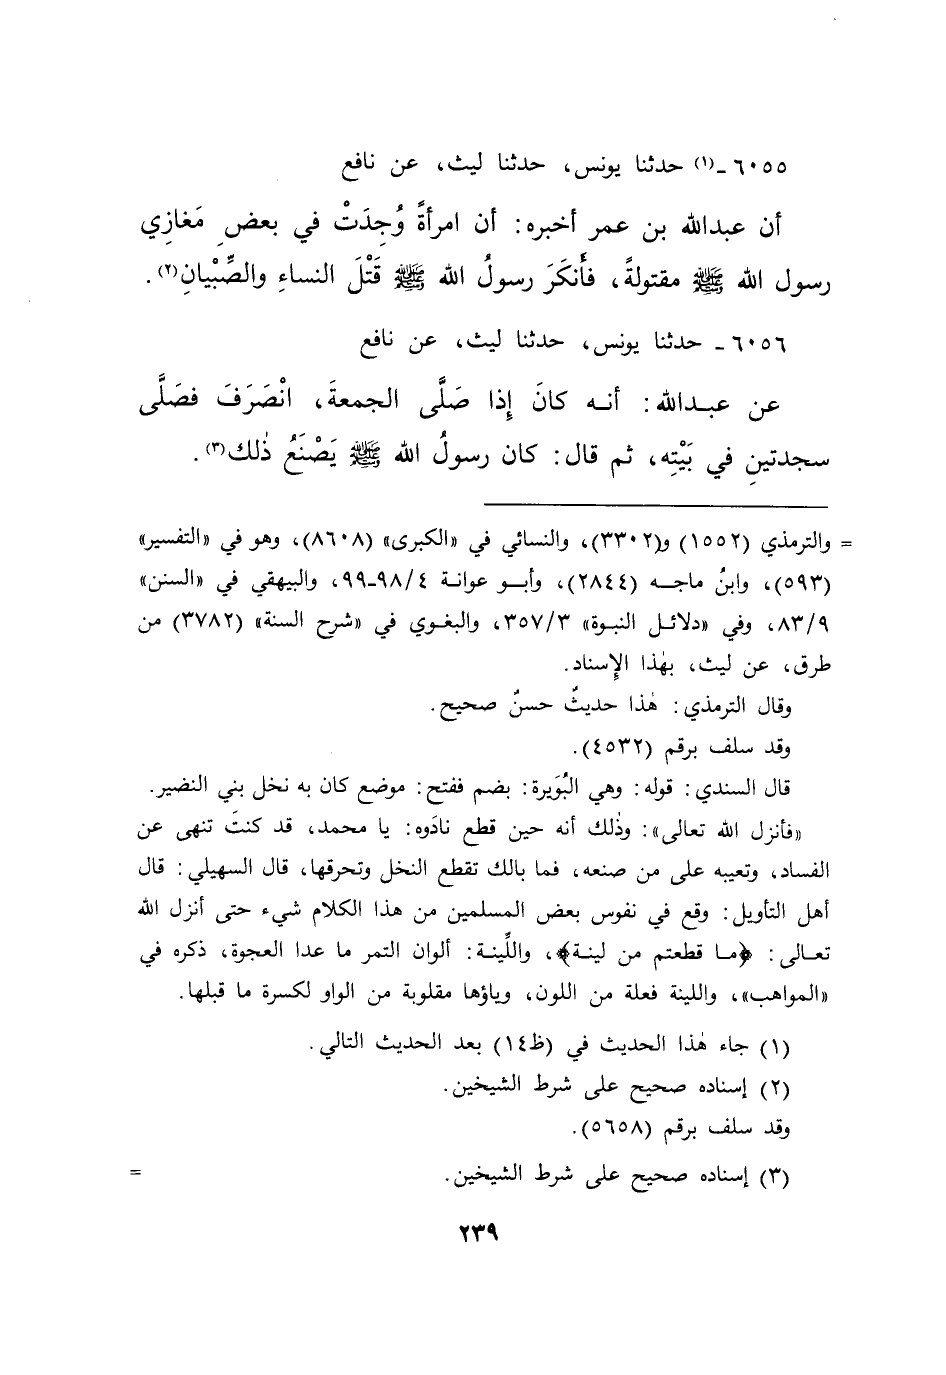 ٦٠٥٥ -(١) حدثنا يونس، حدثنا ليث، عن نافع
أن عبدالله بن عمر أخبره: أن امرأةً وُجِدَتْ في بعضِ مَغازِي
رسول الله ﷺ مقتولةً، فأَنكَرَ رسولُ الله ﷺ قَتْلَ النساءِ والصِّبْيانِ(٢).
٦٠٥٦ - حدثنا يونس، حدثنا ليث، عن نافع
عن عبدالله: أنه كانَ إِذا صَلَّى الجمعةَ، انْصَرَفَ فصَلَّى
سجدتينِ في بَيْتِه، ثم قال: كان رسولُ الله ﷺ يَصْنَعُ ذٰلك(٣).
= والترمذي (١٥٥٢) و(٣٣٠٢)، والنسائي في «الكبرى» (٨٦٠٨)، وهو في «التفسير»
(٥٩٣)، وابنُ ماجه (٢٨٤٤)، وأبو عوانة ٩٨/٤-٩٩، والبيهقي في «السنن»
٨٣/٩، وفي «دلائل النبوة» ٣٥٧/٣، والبغوي في «شرح السنة» (٣٧٨٢) من
طرق، عن ليث، بهٰذا الإِسناد.
وقال الترمذي: هٰذا حديثٌ حسنٌ صحيح.
وقد سلف برقم (٤٥٣٢).
قال السندي: قوله: وهي البُوَيرة: بضم ففتح: موضع كان به نخل بني النضير.
«فأنزل الله تعالى»: وذٰلك أنه حين قطع نادَوه: يا محمد، قد كنتَ تنهى عن
الفساد، وتعيبه على من صنعه، فما بالك تقطع النخل وتحرقها، قال السهيلي: قال
أهل التأويل: وقع في نفوس بعض المسلمين من هذا الكلام شيء حتى أنزل الله
تعالى: ﴿ما قطعتم من لينة﴾، واللِّينة: ألوان التمر ما عدا العجوة، ذكره في
«المواهب»، واللينة فعلة من اللون، وياؤها مقلوبة من الواو لكسرة ما قبلها.
(١) جاء هٰذا الحديث في (ظ١٤) بعد الحديث التالي.
(٢) إسناده صحيح على شرط الشيخين.
وقد سلف برقم (٥٦٥٨).
(٣) إسناده صحيح على شرط الشيخين. =
٢٣٩